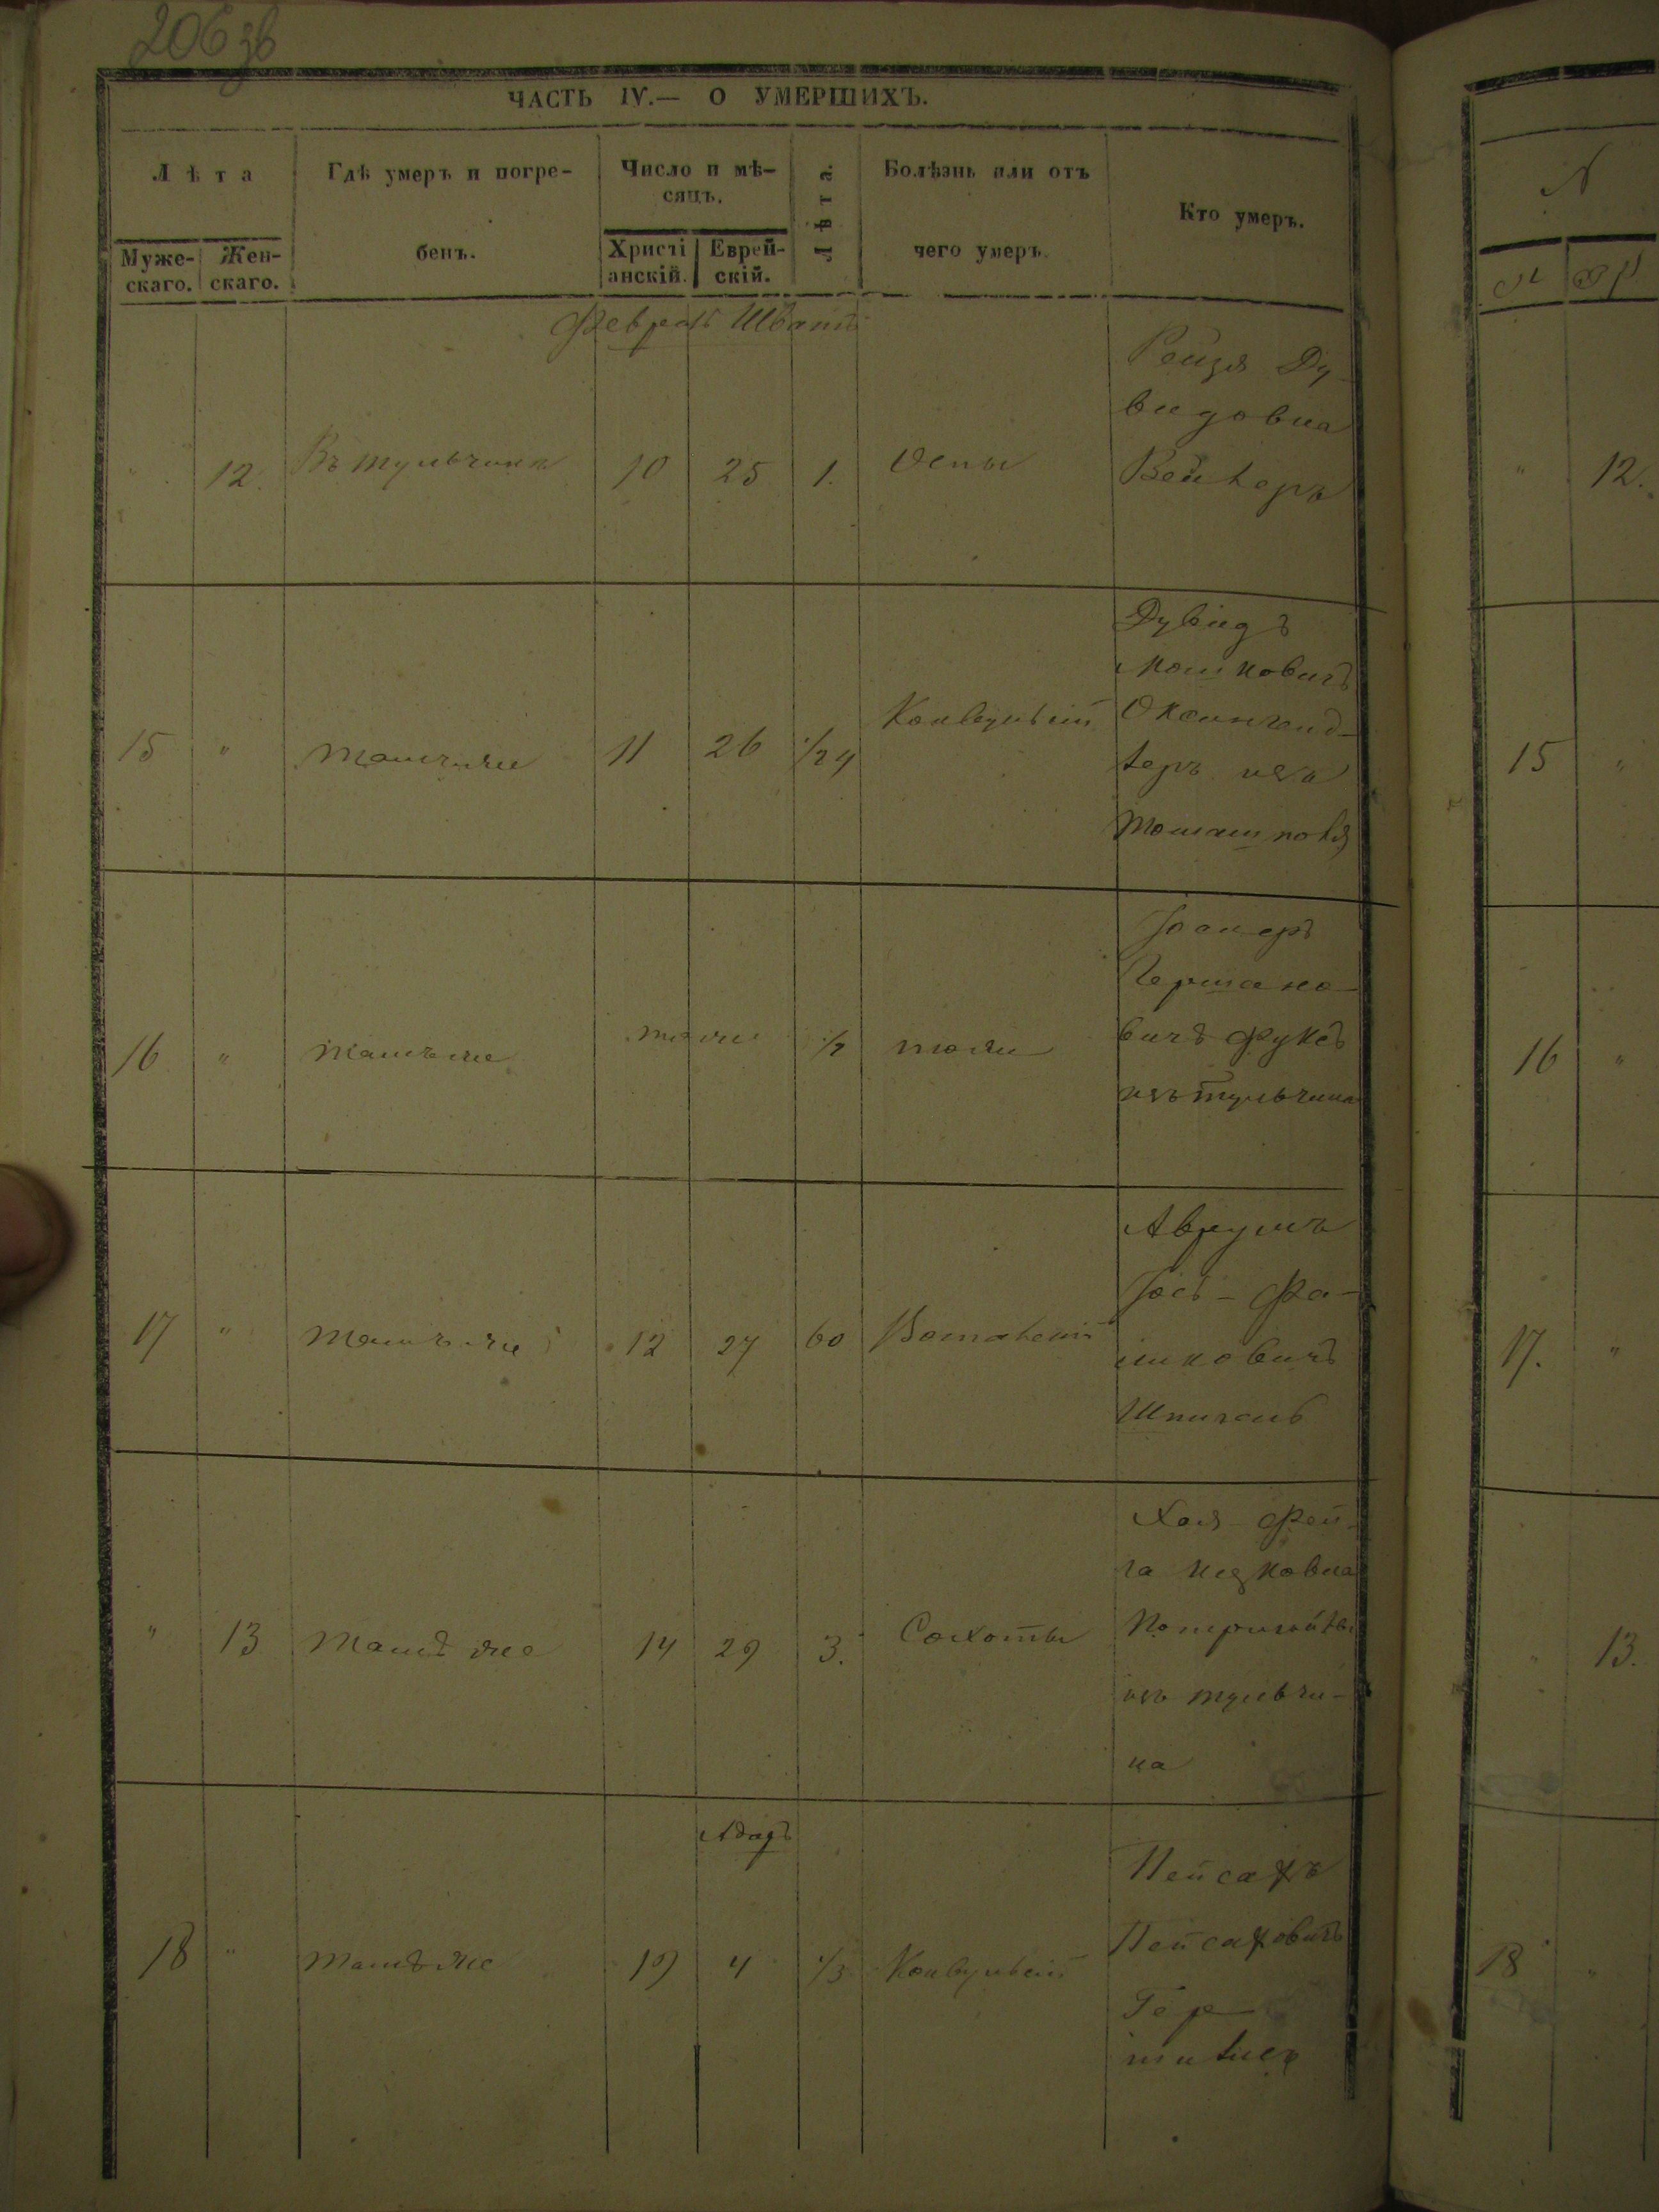 206 зв
ЧАСТЬ IV.— О УМЕРШИХЪ.
Лѣта
Муже-
скаго.
Жен-
скаго.
Гдѣ умеръ и погре-
бенъ.
Число и мѣ-
сяцъ.
Христі
анскій.
Еврей-
скій.
Лѣта.
Болѣзнь или отъ
чего умеръ.
Кто умеръ.
Февраль Шватъ
" 12. Въ Тульчинѣ 10 25 1. Оспы
Рейзя Ду-
видовна
Вейнеръ
15 " Тамъ же 11 26 1/24 Конвульсій
Дувидъ
Мошковичъ
изъ
Томашполя
16 " Тамъ же тоже 1/2 тоже
Гершено-
вичъ Фуксъ
изъ Тульчина
17 " Тамъ же 12 27 60
Аврумъ
Іось-Фа-
ликовичъ
Шпигель
" 13 Тамъ же 14 29 3. Сухоты
Хая-Фей-
га Ицковна
изъ Тульчи-
на
Адаръ
18 " Тамъ же 19 4 1/3 Конвульсій
Пейсахъ
Пейсаховичъ
Гер
N
12.
15
16 "
17. "
13.
18